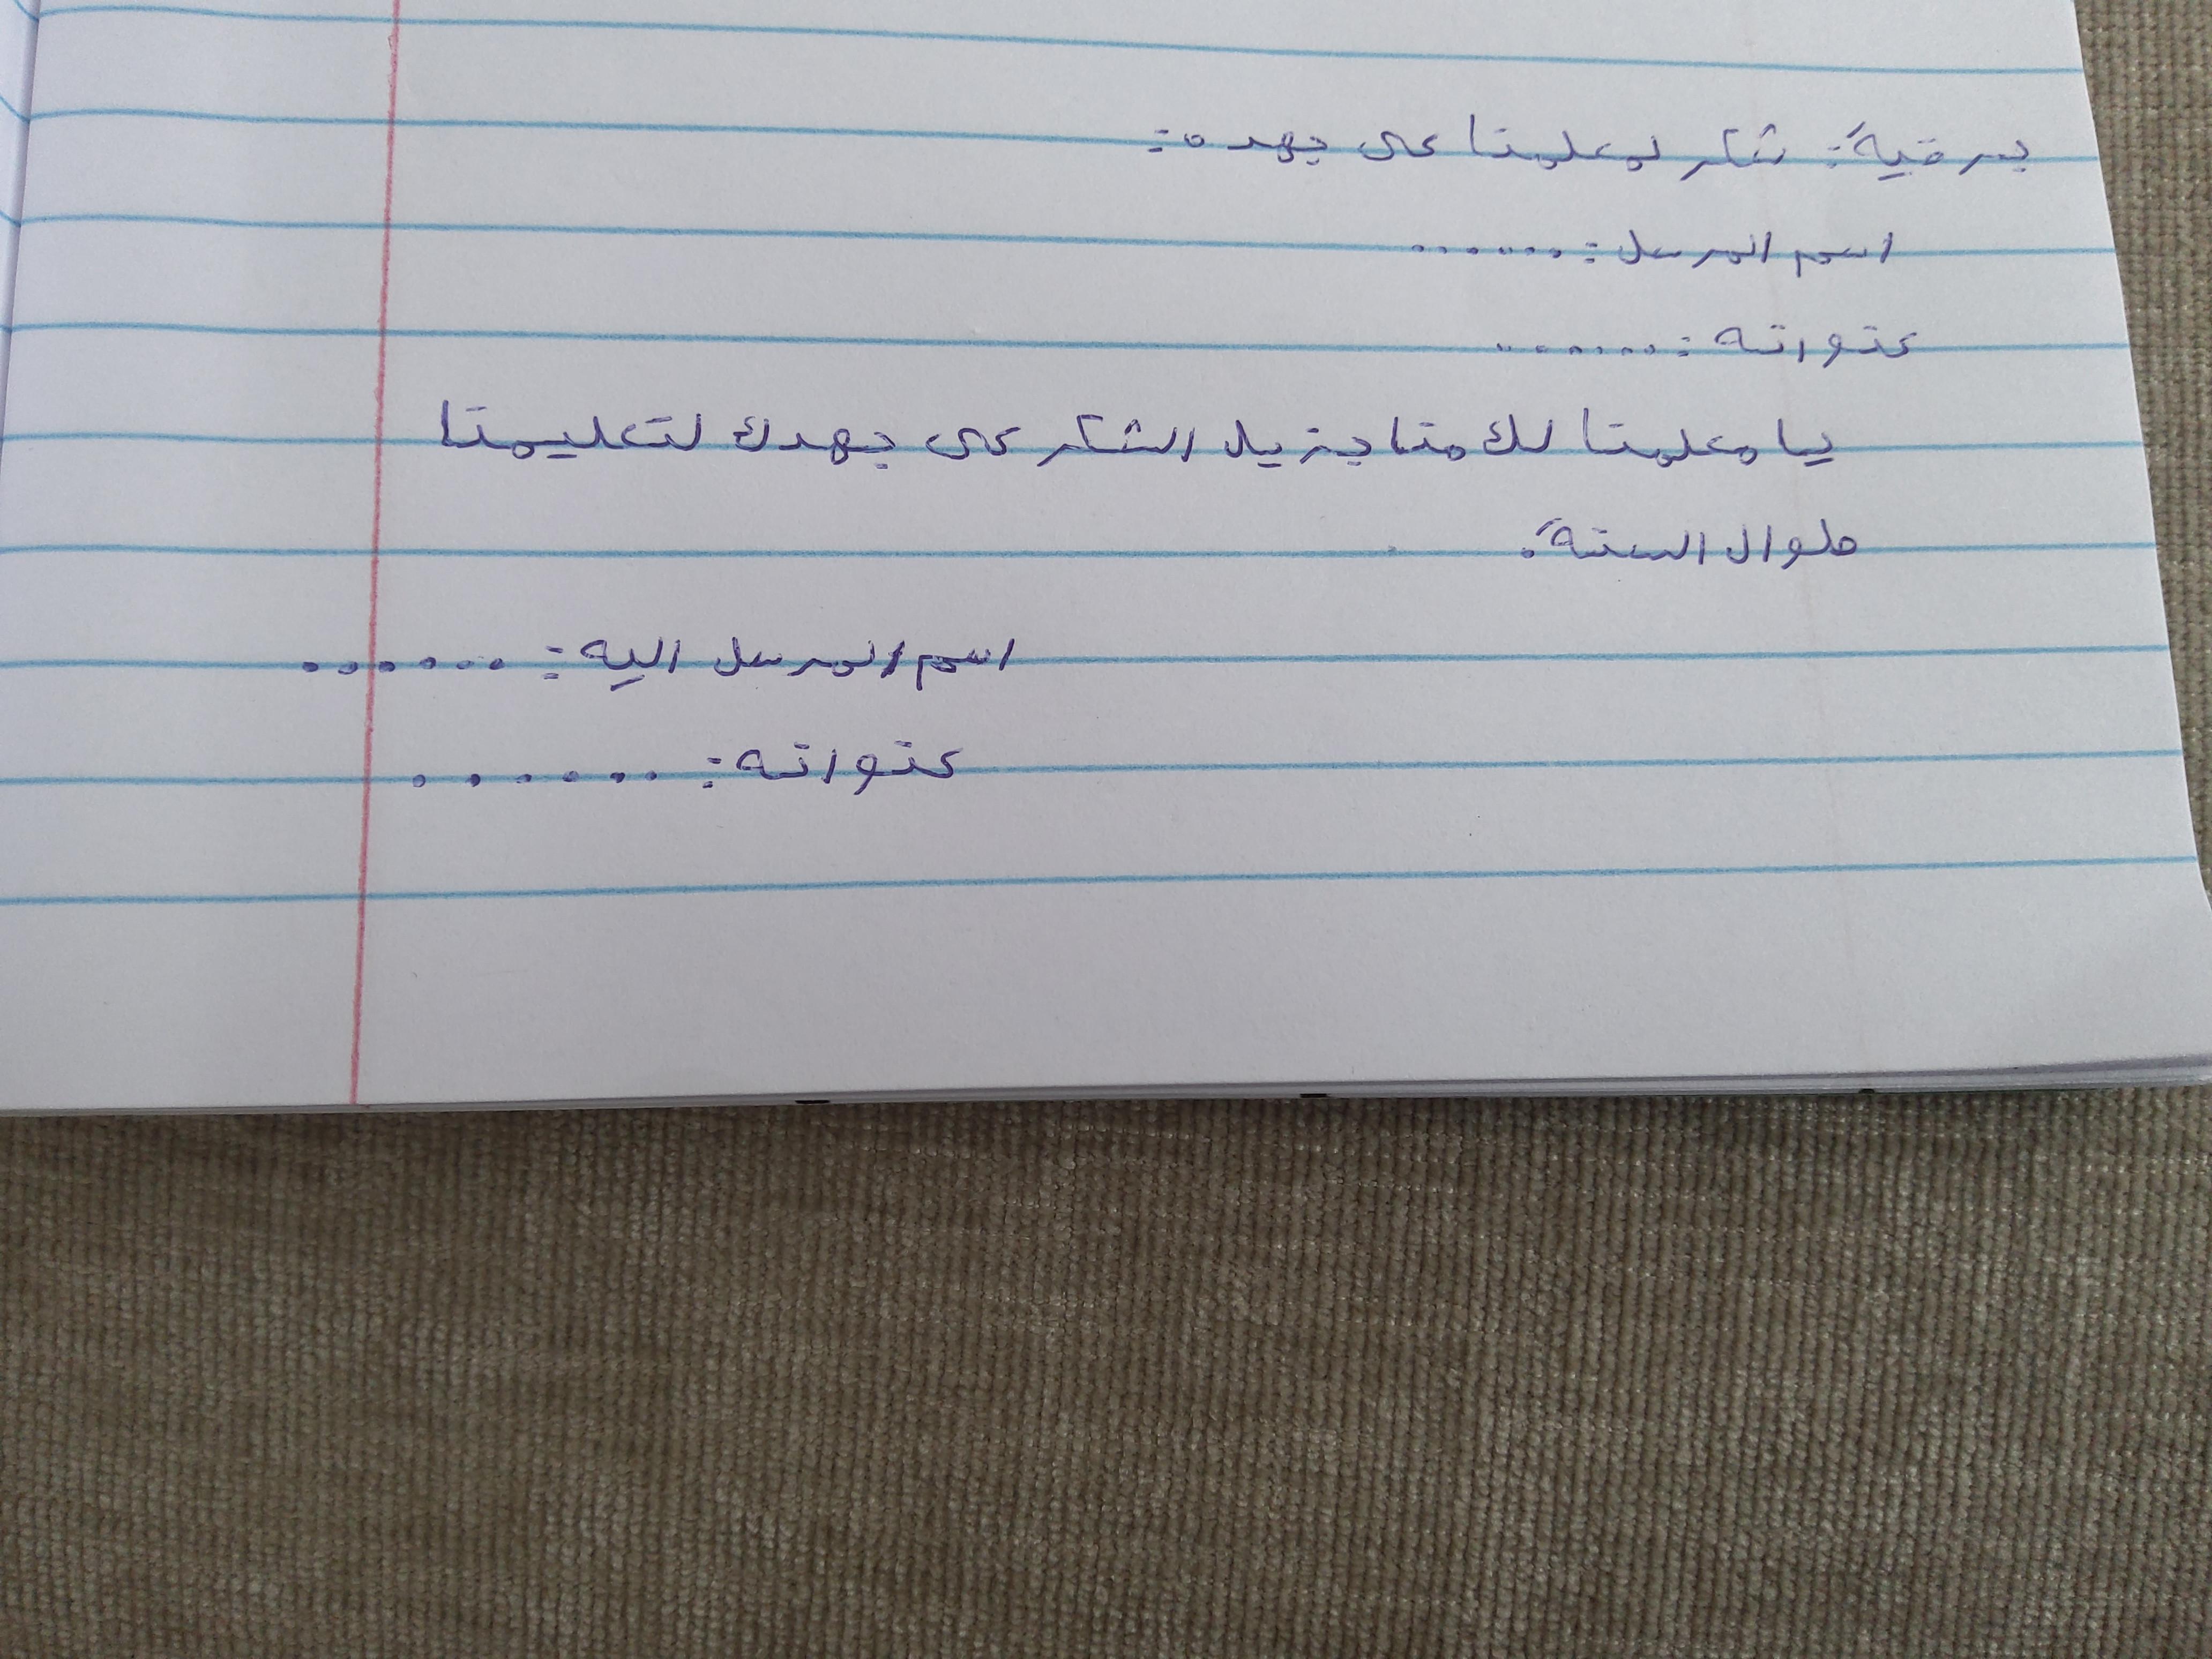 برقية: شكر لمعلمنا على جهده:
اسم المرسل: ......
عنوانه: .......
يا معلمنا لك منا جزيل الشكر على جهدك لتعليمنا
طوال السنة.
اسم المرسل اليه: ......
عنوانه: ......